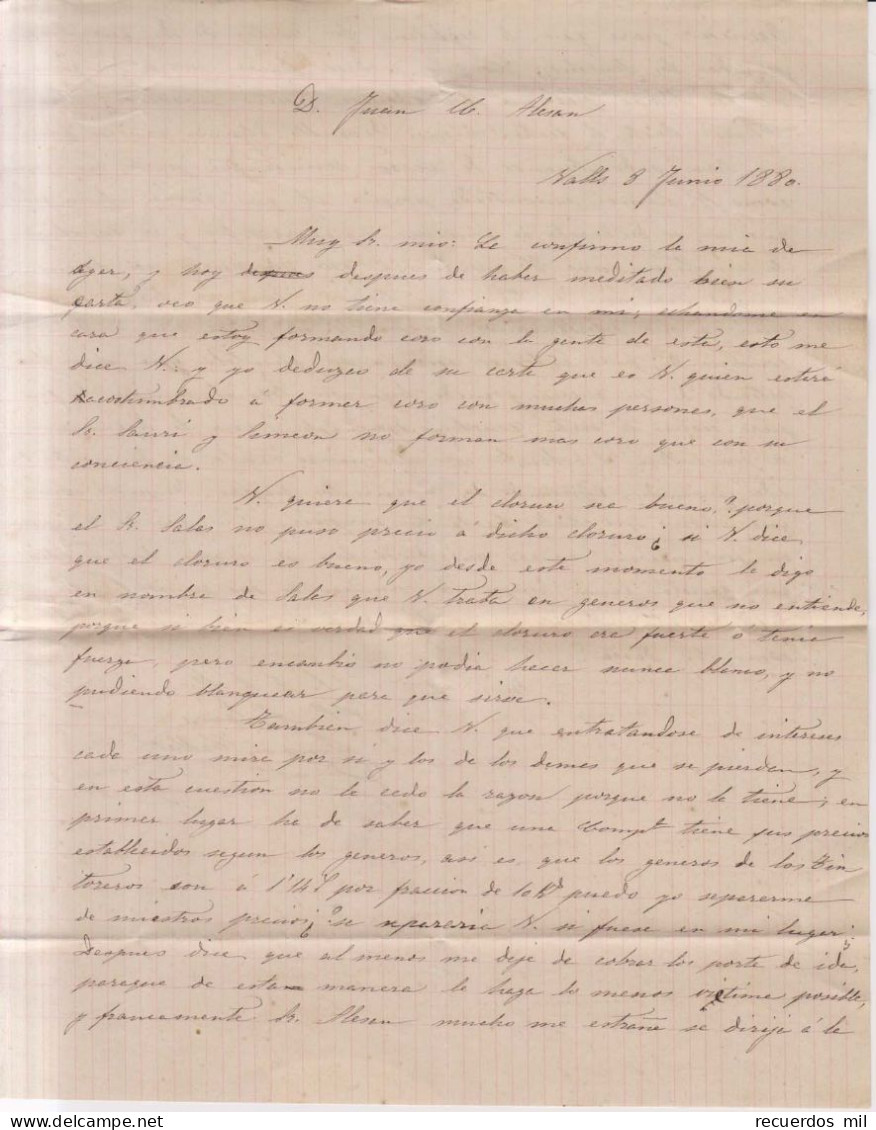 D. Juan M. Alesan
Valls 8 Junio 1880.
Muy Sr. mio: Le confirmo la mia de
ayer, y hoy despues despues de haber meditado bien su
carta, veo que V. no tiene confianza en mi, echandome en
cara que estoy formando coro con la gente de esta, esto me
dice V. y yo deduzco de su carta que es V. quien estará
acostumbrado á formar coro con muchas personas, que el
Sr. Sauri y Simeon no forman mas coro que con su
conciencia.
V. quiere que el cloruro sea bueno? porque
el Sr. Salas no puso precio á dicho cloruro¿ si V. dice
que el cloruro es bueno, yo desde este momento le digo
en nombre de Salas que V. trata en generos que no entiende,
porque si bien es verdad que el cloruro era fuerte ó tenia
fuerza, pero encambio no podia hacer nunca blanco, y no
pudiendo blanquear para que sirve.
Tambien dice V. que entratandose de intereses
cada uno mire por si y los de los demas que se pierdan, y
en esta cuestion no le cedo la razon porque no la tiene; en
primer lugar ha de saber que una Compª tiene sus precios
establecidos segun los generos, asi es, que los generos de los Tin
toreros son á 1'14 por fraccion de 10 Ks puedo yo separarme
de nuestros precios¿? se separaria V. si fuese en mi lugar?
Despues dice que al menos me deje de cobrar los porte de ida,
paraque de esta manera le haga lo menos victima posible,
y francamente Sr. Alesan mucho me estraña se dirija á la
recuerdos mil